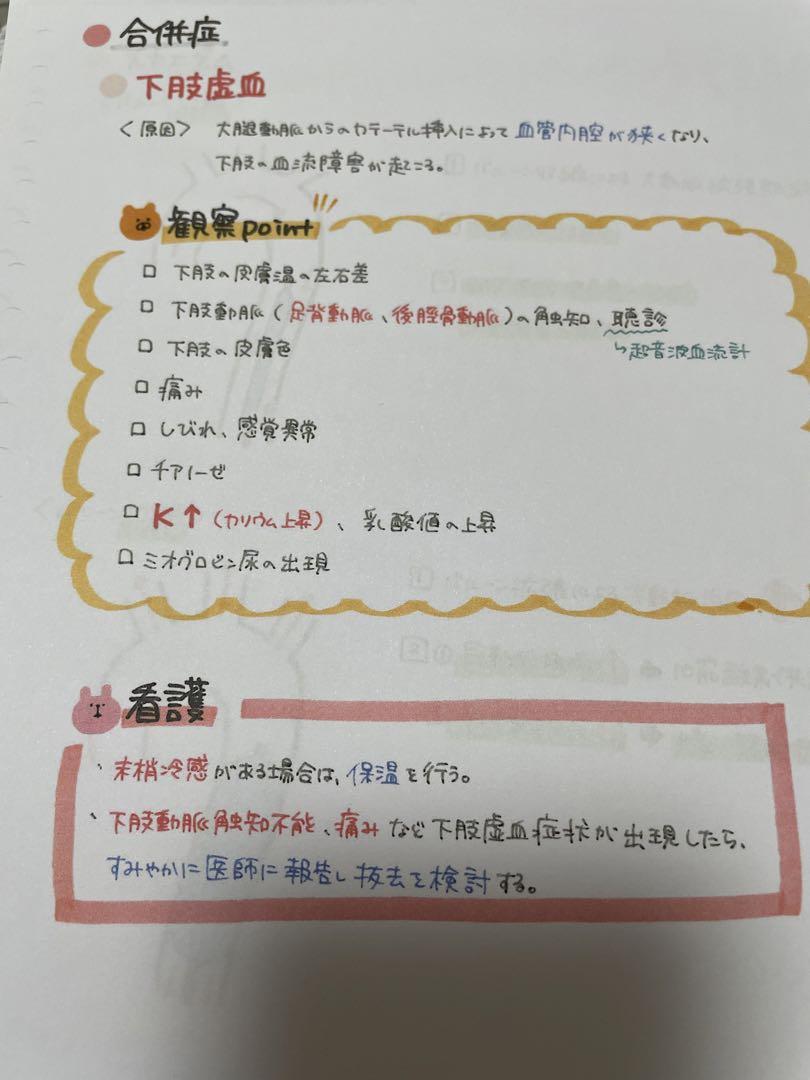 合併症
下肢虚血
<原因> 大腿動脈からのカテーテル挿入によって血管内腔が狭くなり、
下肢の血流障害が起こる。
観察point
□ 下肢の皮膚温の左右差
□ 下肢動脈(足背動脈、後脛骨動脈)の触知、聴診
↳超音波血流計
□ 下肢の皮膚色
□ 痛み
□ しびれ、感覚異常
□ チアノーゼ
□ K↑(カリウム上昇)、乳酸値の上昇
□ ミオグロビン尿の出現
看護
・末梢冷感がある場合は、保温を行う。
・下肢動脈触知不能、痛みなど下肢虚血症状が出現したら、
すみやかに医師に報告し抜去を検討する。